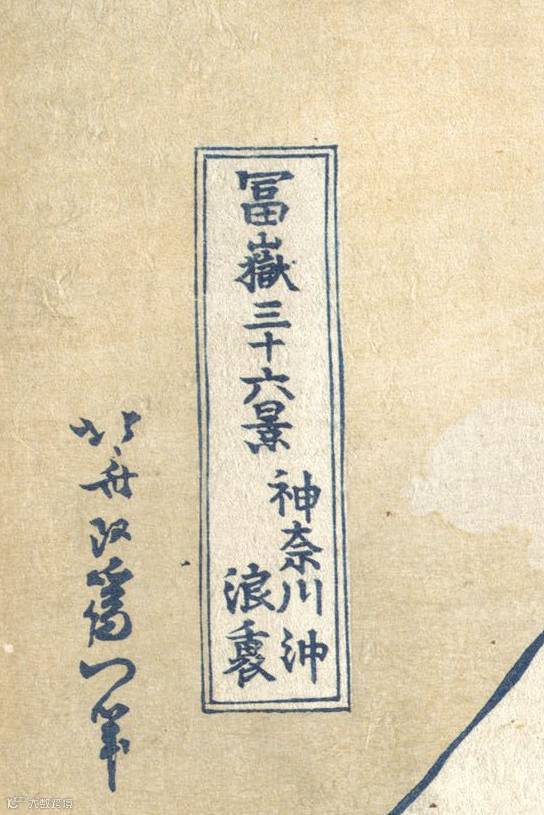 冨嶽三十六景
神奈川沖
浪裏
北斎改爲一筆